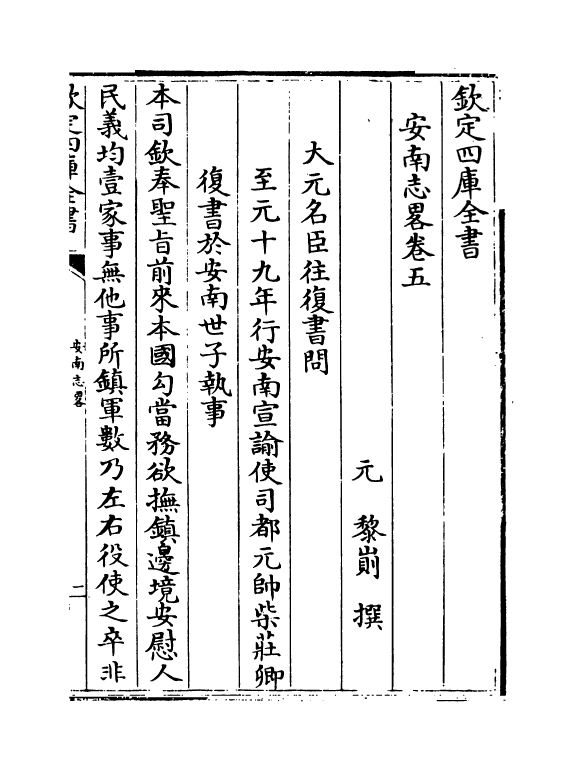 欽定四庫全書
安南志畧卷五
元 黎崱 撰
大元名臣往復書問
至元十九年行安南宣諭使司都元帥柴莊卿
復書於安南世子執事
本司欽奉聖旨前來本國勾當務欲撫鎮邊境安慰人
民義均壹家事無他事所鎮軍數乃左右役使之卒非
欽定四庫全書
安南志畧
二